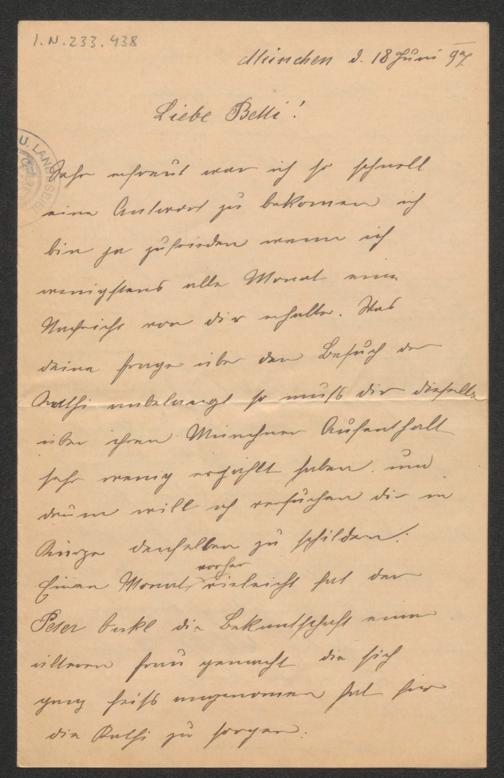 I.N. 233.438
München d. 18 Juni 97
Liebe Betti!
U. LAN
Sehr erfreut war ich so schnell
eine Antwort zu bekomen ich
bin ja zufrieden wenn ich
wenigstens alle Monat eine
Nachricht von dir erhalte. Was
deine Frage über den Besuch der
Kathi anbelangt so muß dir dieselbe
über ihren Münchner Aufenthalt
sehr wenig erzählt haben und
darum will ich versuchen dir in
Kürze denselben zu schildern:
vorher
Einen Monat vieleicht hat der
Peter die Bekantschaft einer
älteren Frau gemacht die sich
ganz angenomen hat für
die Kathi zu sorgen.